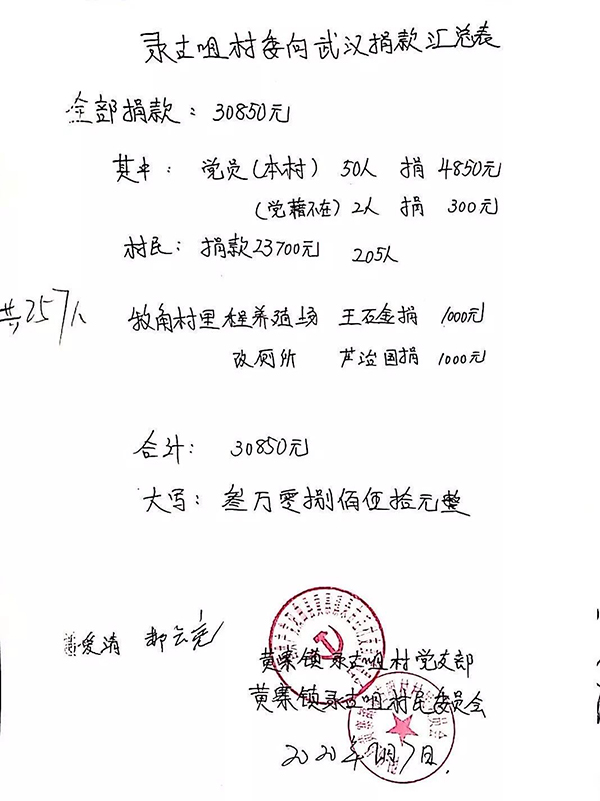 录古咀村委向武汉捐款汇总表
全部捐款：30850元
其中：党员(本村) 50人 捐 4850元
(党籍不在) 2人 捐 300元
村民：捐款23700元 205人
共257人
牧角村里程养殖场 王石金捐 1000元
改厕所 芦治国捐 1000元
合计：30850元
大写：叁万零捌佰伍拾元整
爱清 郝云亮
黄寨镇录古咀村党支部
黄寨镇录古咀村民委员会
2020年2月7日.